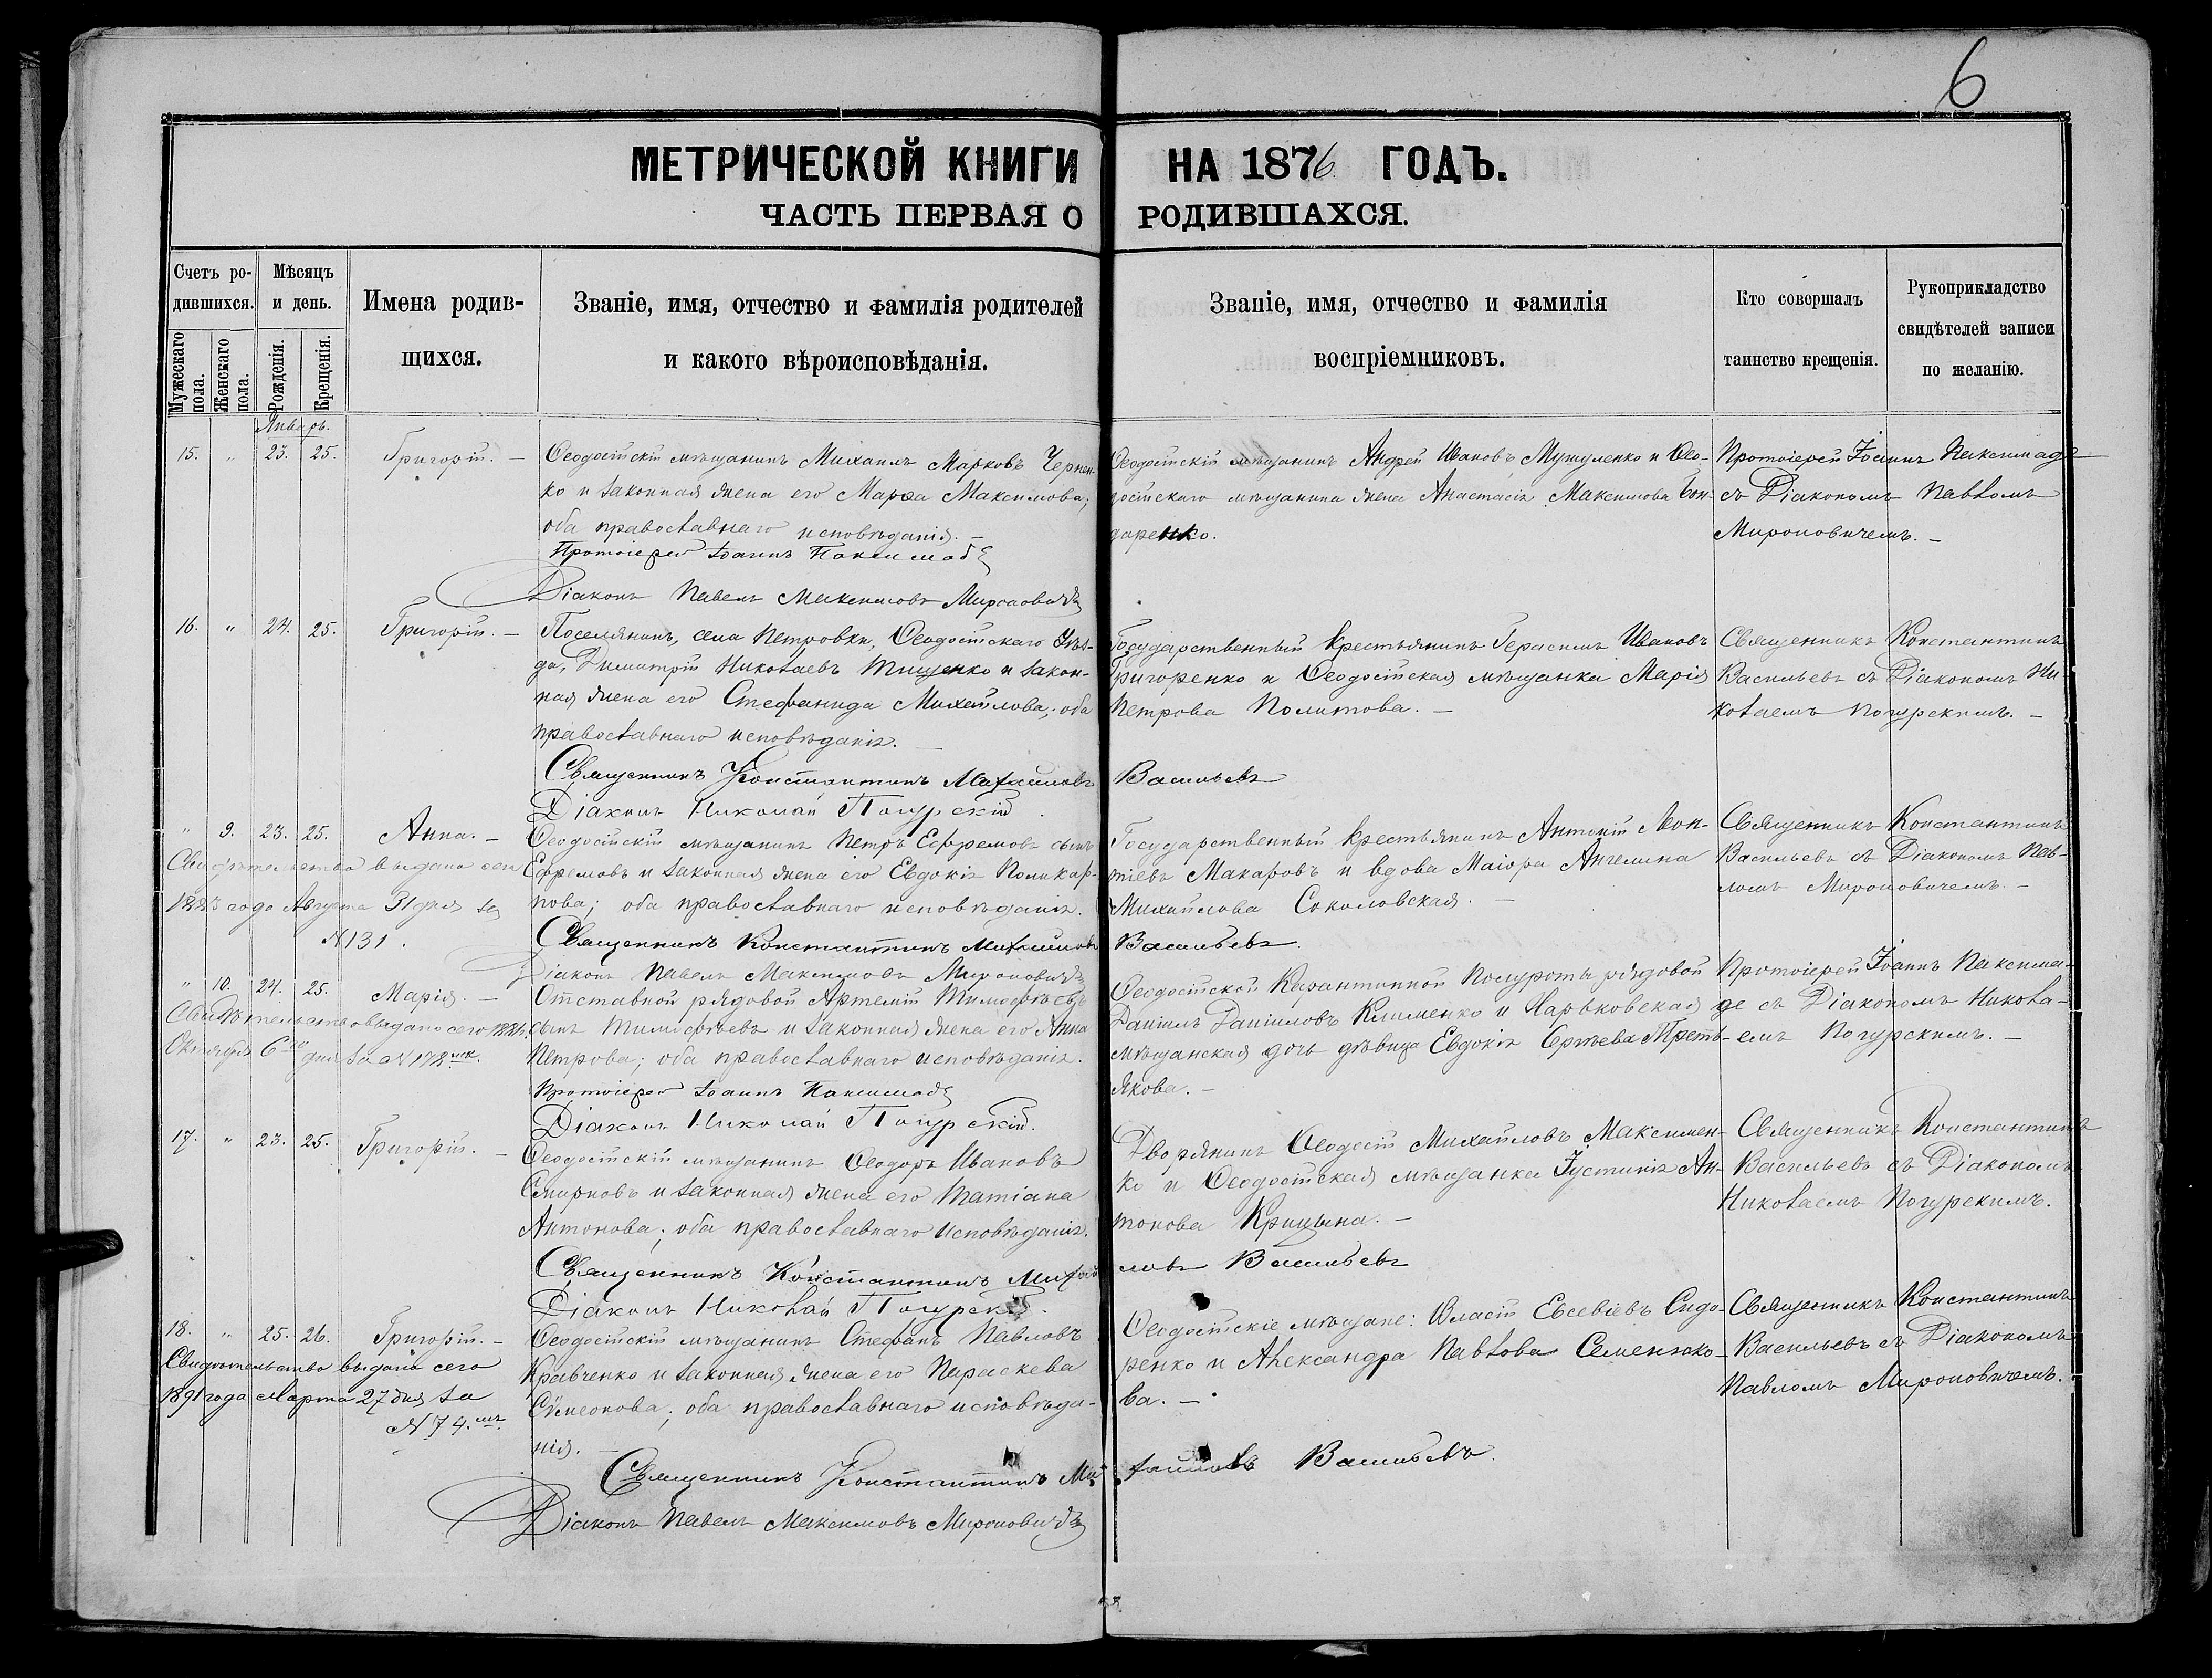 6
МЕТРИЧЕСКОЙ КНИГИ НА 1876 ГОДЪ.
ЧАСТЬ ПЕРВАЯ О РОДИВШАХСЯ.
Счетъ ро-
дившихся.
Мужескаго пола.
Женскаго пола.
Мѣсяцъ
и день.
Рожденія.
Крещенія.
Имена родив-
щихся.
Званіе, имя, отчество и фамилія родителей
и какого вѣроисповѣданія.
Званіе, имя, отчество и фамилія
воспріемниковъ.
Кто совершалъ
таинство крещенія.
Рукоприкладство
свидѣтелей записи
по желанію.
Январь.
15. " 23. 25. Григорій. —
Ѳеодосійскій мѣщанинъ Михаилъ Марковъ Чернен-
ко и законная жена его Марѳа Максимова;
оба православнаго исповѣданія. —
Протоіерей Іоаннъ
Діаконъ Павелъ Максимовъ Мироновичъ
Ѳеодосійскій мѣщанинъ Андрей Ивановъ и Ѳео-
досійскаго мѣщанина жена Анастасія Максимова Бон-
даренко.
Протоіерей Іоаннъ
съ Діакономъ Павломъ
Мироновичемъ. —
16. " 24. 25. Григорій. —
Поселянинъ, села Петровки, Ѳеодосійскаго Уѣз-
да, Димитрій Николаевъ Тищенко и закон-
ная жена его Стефанида Михайлова; оба
православнаго исповѣданія. —
Священникъ Константинъ Михайловъ Васильевъ
Діаконъ Николай Погурскій
Государственный крестьянинъ Герасимъ Ивановъ
Григоренко и Ѳеодосійская мѣщанка Марія
Петрова Политова. —
Священникъ Константинъ
Васильевъ съ Діакономъ Ни-
колаемъ Погурскимъ. —
" 9. 23. 25. Анна. —
Свидѣтельство выдано сего
года Августа 31 дня за
№ 131.
Ѳеодосійскій мѣщанинъ Петръ Ефремовъ сынъ
Ефремовъ и законная жена его Евдокія Поликар-
пова; оба православнаго исповѣданія.
Священникъ Константинъ Михайловъ Васильевъ.
Діаконъ Павелъ Максимовъ Мироновичъ
Государственный крестьянинъ Антоній Леон-
тіевъ Макаровъ и вдова Маіора Ангелина
Михайлова Соколовская. —
Священникъ Константинъ
Васильевъ съ Діакономъ Пав-
ломъ Мироновичемъ. —
" 10. 24. 25. Марія. —
Свидѣтельство выдано сего
Октября 6го дня за № 172
Отставной рядовой Артемій Тимофѣевъ
сынъ Тимофѣевъ и законная жена его Анна
Петрова; оба православнаго исповѣданія.
Протоіерей Іоаннъ
Діаконъ Николай Погурскій.
Ѳеодосійской Карантинной Полуроты рядовой
Даніилъ Даніиловъ Клименко и Харьковская
мѣщанская дочь дѣвица Евдокія Сергѣева Треть-
якова. —
Протоіерей Іоаннъ
съ Діакономъ Никола-
емъ Погурскимъ. —
17. " 23. 25. Григорій. —
Ѳеодосійскій мѣщанинъ Ѳеодоръ Ивановъ
Смирновъ и законная жена его Татіана
Антонова; оба православнаго исповѣданія.
Священникъ Константинъ Михайловъ Васильевъ
Діаконъ Николай Погурскій.
Дворянинъ Ѳеодосій Михайловъ Максимен-
ко и Ѳеодосійская мѣщанка Іустинія Ан-
тонова Крицына. —
Священникъ Константинъ
Васильевъ съ Діакономъ
Николаемъ Погурскимъ.
18. " 25. 26. Григорій. —
Свидѣтельство выдано сего
1891 года Марта 27 дня за
№ 74.
Ѳеодосійскій мѣщанинъ Стефанъ Павловъ
Кравченко и законная жена его Параскева
Сѵмеонова; оба православнаго исповѣда-
нія. —
Священникъ Константинъ Михайловъ Васильевъ.
Діаконъ Павелъ Максимовъ Мироновичъ
Ѳеодосійскіе мѣщане: Власій Евсевіевъ Сидо-
ренко и Александра Павлова Семенко-
ва. —
Священникъ Константинъ
Васильевъ съ Діакономъ
Павломъ Мироновичемъ.